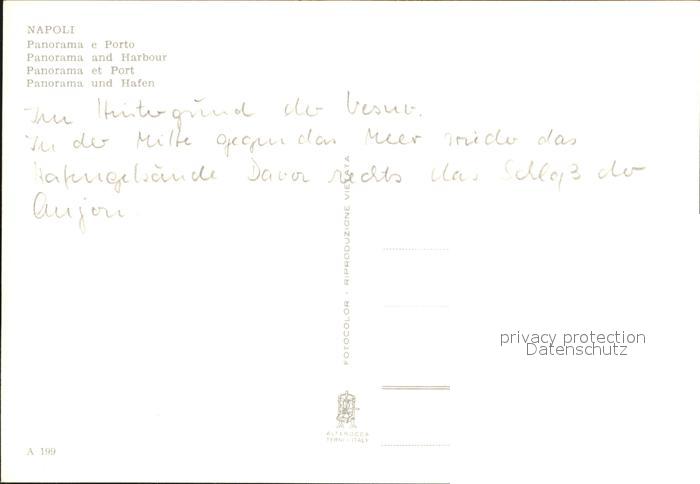 NAPOLI
Panorama e Porto
Panorama and Harbour
Panorama et Port
Panorama und Hafen
Im Hintergrund der Vesuv.
In der Mitte gegen das Meer wieder das
Hafengebäude Davor rechts das Schloß der
Anjou.
FOTOCOLOR - RIPRODUZIONE VIETATA
privacy protection
Datenschutz
ALTEROCCA
TERNI - ITALY
A 199